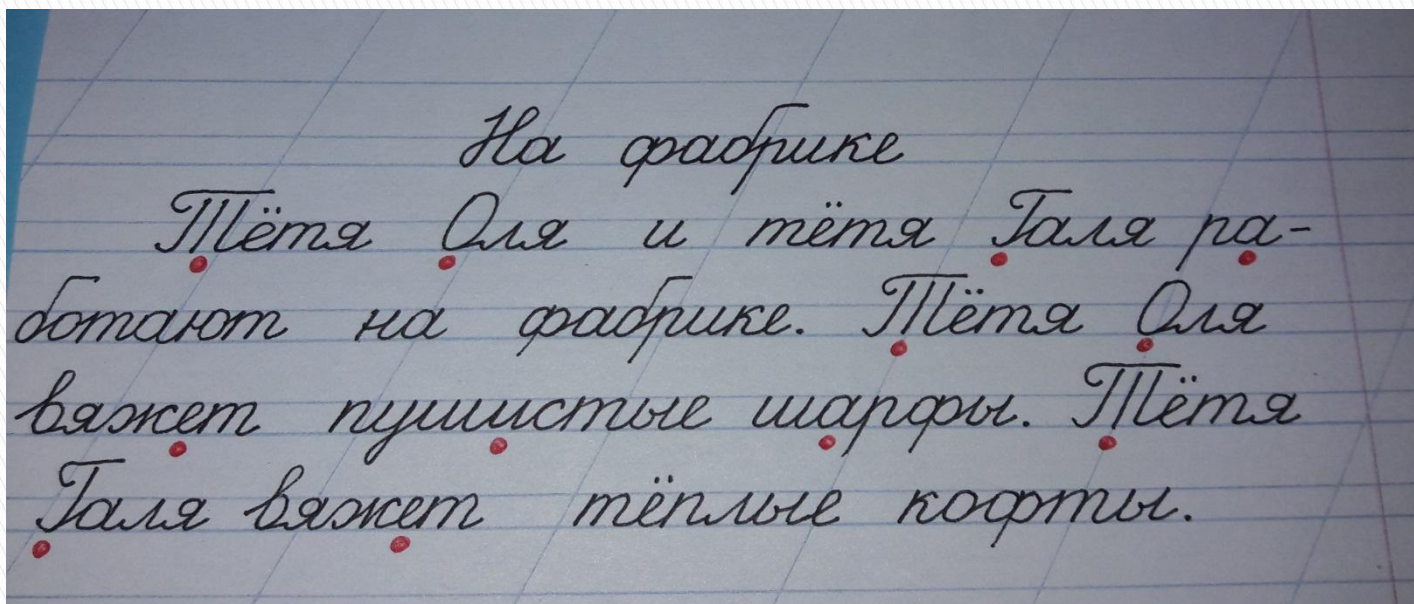 На фабрике
Тётя Оля и тётя Галя ра-
ботают на фабрике. Тётя Оля
вяжет пушистые шарфы. Тётя
Галя вяжет тёплые кофты.